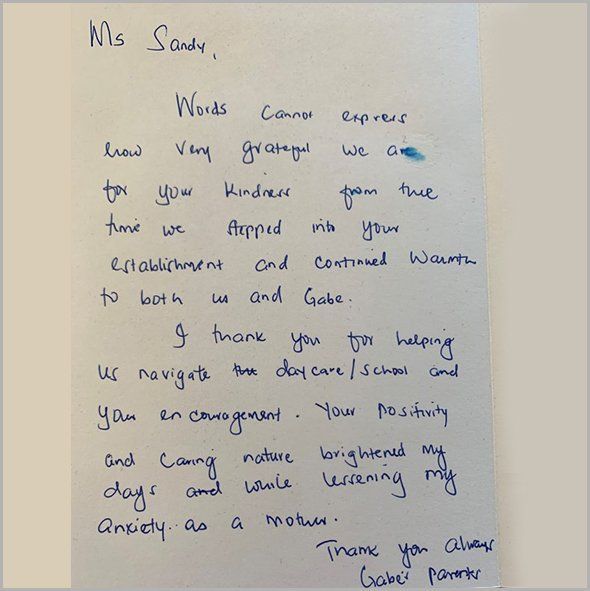 Ms Sandy,
Words cannot express
how very grateful we are
for your kindness from the
time we stepped into your
establishment and continued warmth
to both us and Gabe.
I thank you for helping
us navigate the daycare/school and
your encouragement. Your positivity
and caring nature brightened my
days and while lessening my
anxiety.. as a mother.
Thank you always
Gabe's parents